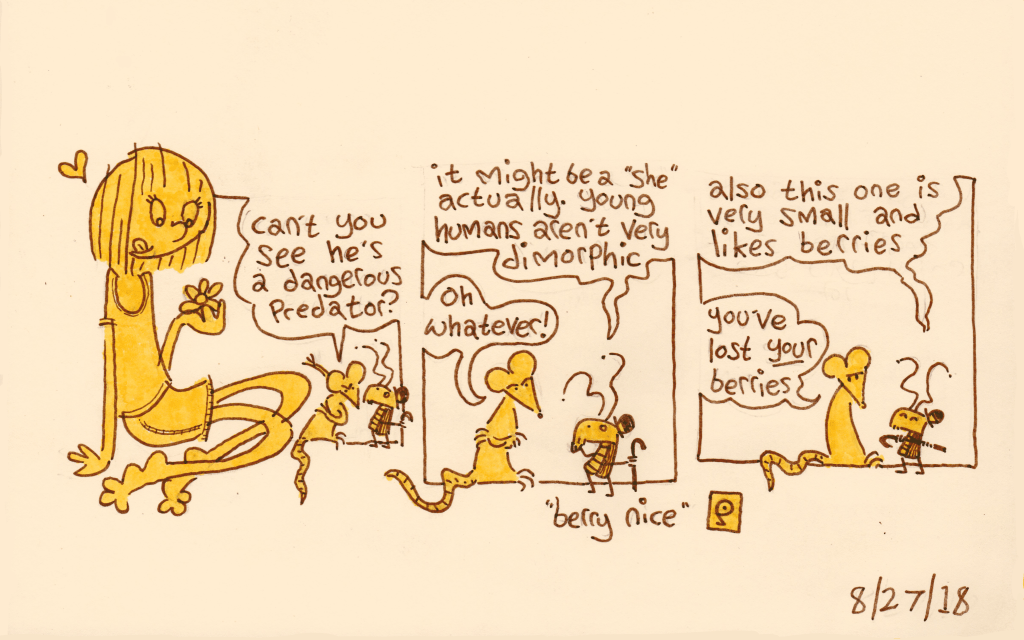 can't you
see he's
a dangerous
Predator?
it might be a "she"
actually. young
humans aren't very
dimorphic
Oh
whatever!
also this one is
very small and
likes berries
you've
lost your
berries
"berry nice"
8/27/18